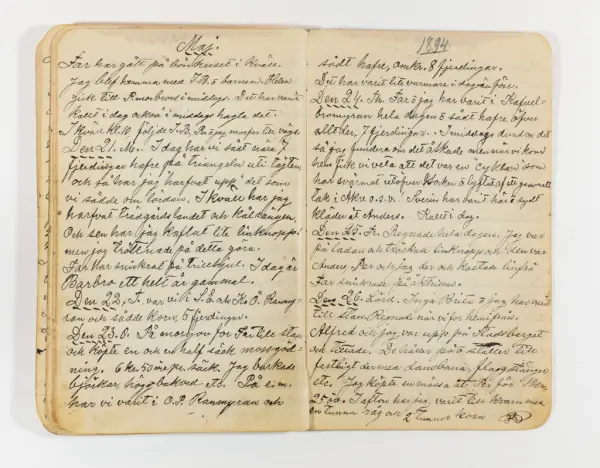 Maj.
Far har gått på bönhuset i kväll.
Jag blef hemma med T.B. o barnen. Helen
gick till Rmorbrors i middags. Det har varit
kallt i dag också i middags hagla det.
I kväll kl. 10 följde T.B. morfar till vägs.
Den 21. M. I dag har vi sått nära 7
fjerdingar hafre på Triangeln uti lägden
och så har jag harfvat upp det som
vi sådde om lördan. I kväll har jag
harfvat trädgårdslandet och kållängen.
Och sen har jag kaflat lite linknopp!
men jag tröttnade på detta göra.
Far har snickrat på Trillhjul. I dag är
Barbro ett hell år gammal.
Den 22. T. var vi hi S.E. och Ks Ö. Ranmy-
ran och sådde korn, 5 fjerdingar.
Den 23. O. På morgon for Far till stan
och köpte en och en half säck mossgöd-
ning. 6 kr. 50 öre pr. säck. Jag barkade
björkar, högg bakved etc. På e.m.
har vi varit i O.P. Ranmyran och
1894.
sådt hafre, omkr. 8 fjerdingar.
Det har varit lite varmare i dag än förr.
Den 24. Th. Far o jag har varit i
bromyran hela dagen o sådt hafre öfver
alltder, 7 fjerdingar. I middags
så jag fundera om det åskade men när vi kom
hem fick vi veta att det var en cyklon som
har svärmat utöfver Norken o lyftat af ett gammalt
tak i Åkre o.s.v. Tvärin har varit här o sydt
kläder åt Anders. Kallt i dag.
Den 25. Fr. Regnade hela dagen. Jag var
på ladan och tröskade linknopp och den var
Anders, Per och jag der och kastade linfrö
Far snickrade på åkthem.
Den 26. Lörd. Inga Brita o jag har varit
till stan Regnade när vi for hemifrån.
Alfred och jag var upp på Stadsberget
och tittade. De håller på o ställer till
festligt der med dansbana, flaggstänger
etc. Jag köpte en mössa åt Per för
2:50. I afton har jag varit till kvarn med
en tunna råg och 2 tunnor korn